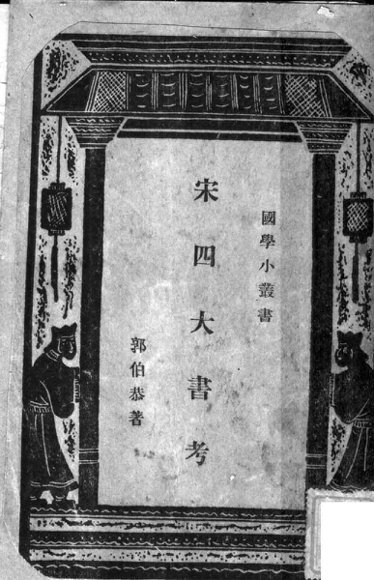 國學小叢書
宋四大書考
郭伯恭著